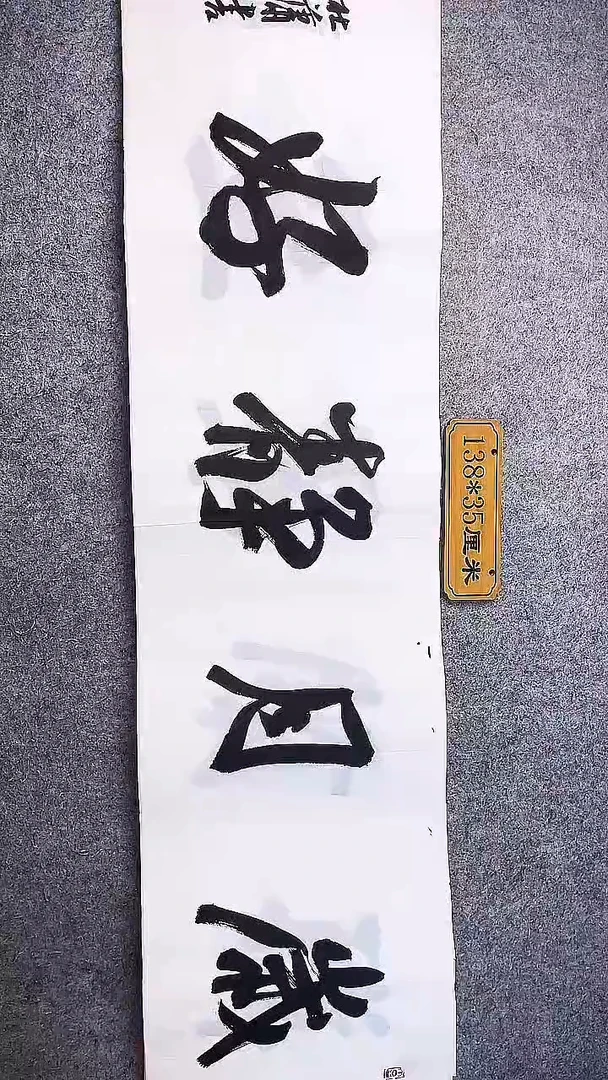 歲月靜好
138*35厘米